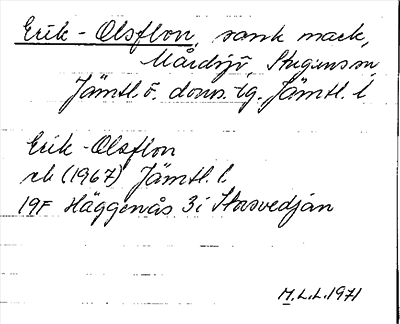 Erik-Olsflon, sank mark,
Mårdsjö, Stuguns sn
Jämtl. ö. doms.lg. Jämtl. l.
Erik-Olsflon
rb (1967) Jämtl. l.
19F Häggenås 3i Storsvedjan
M.L.L. 1971